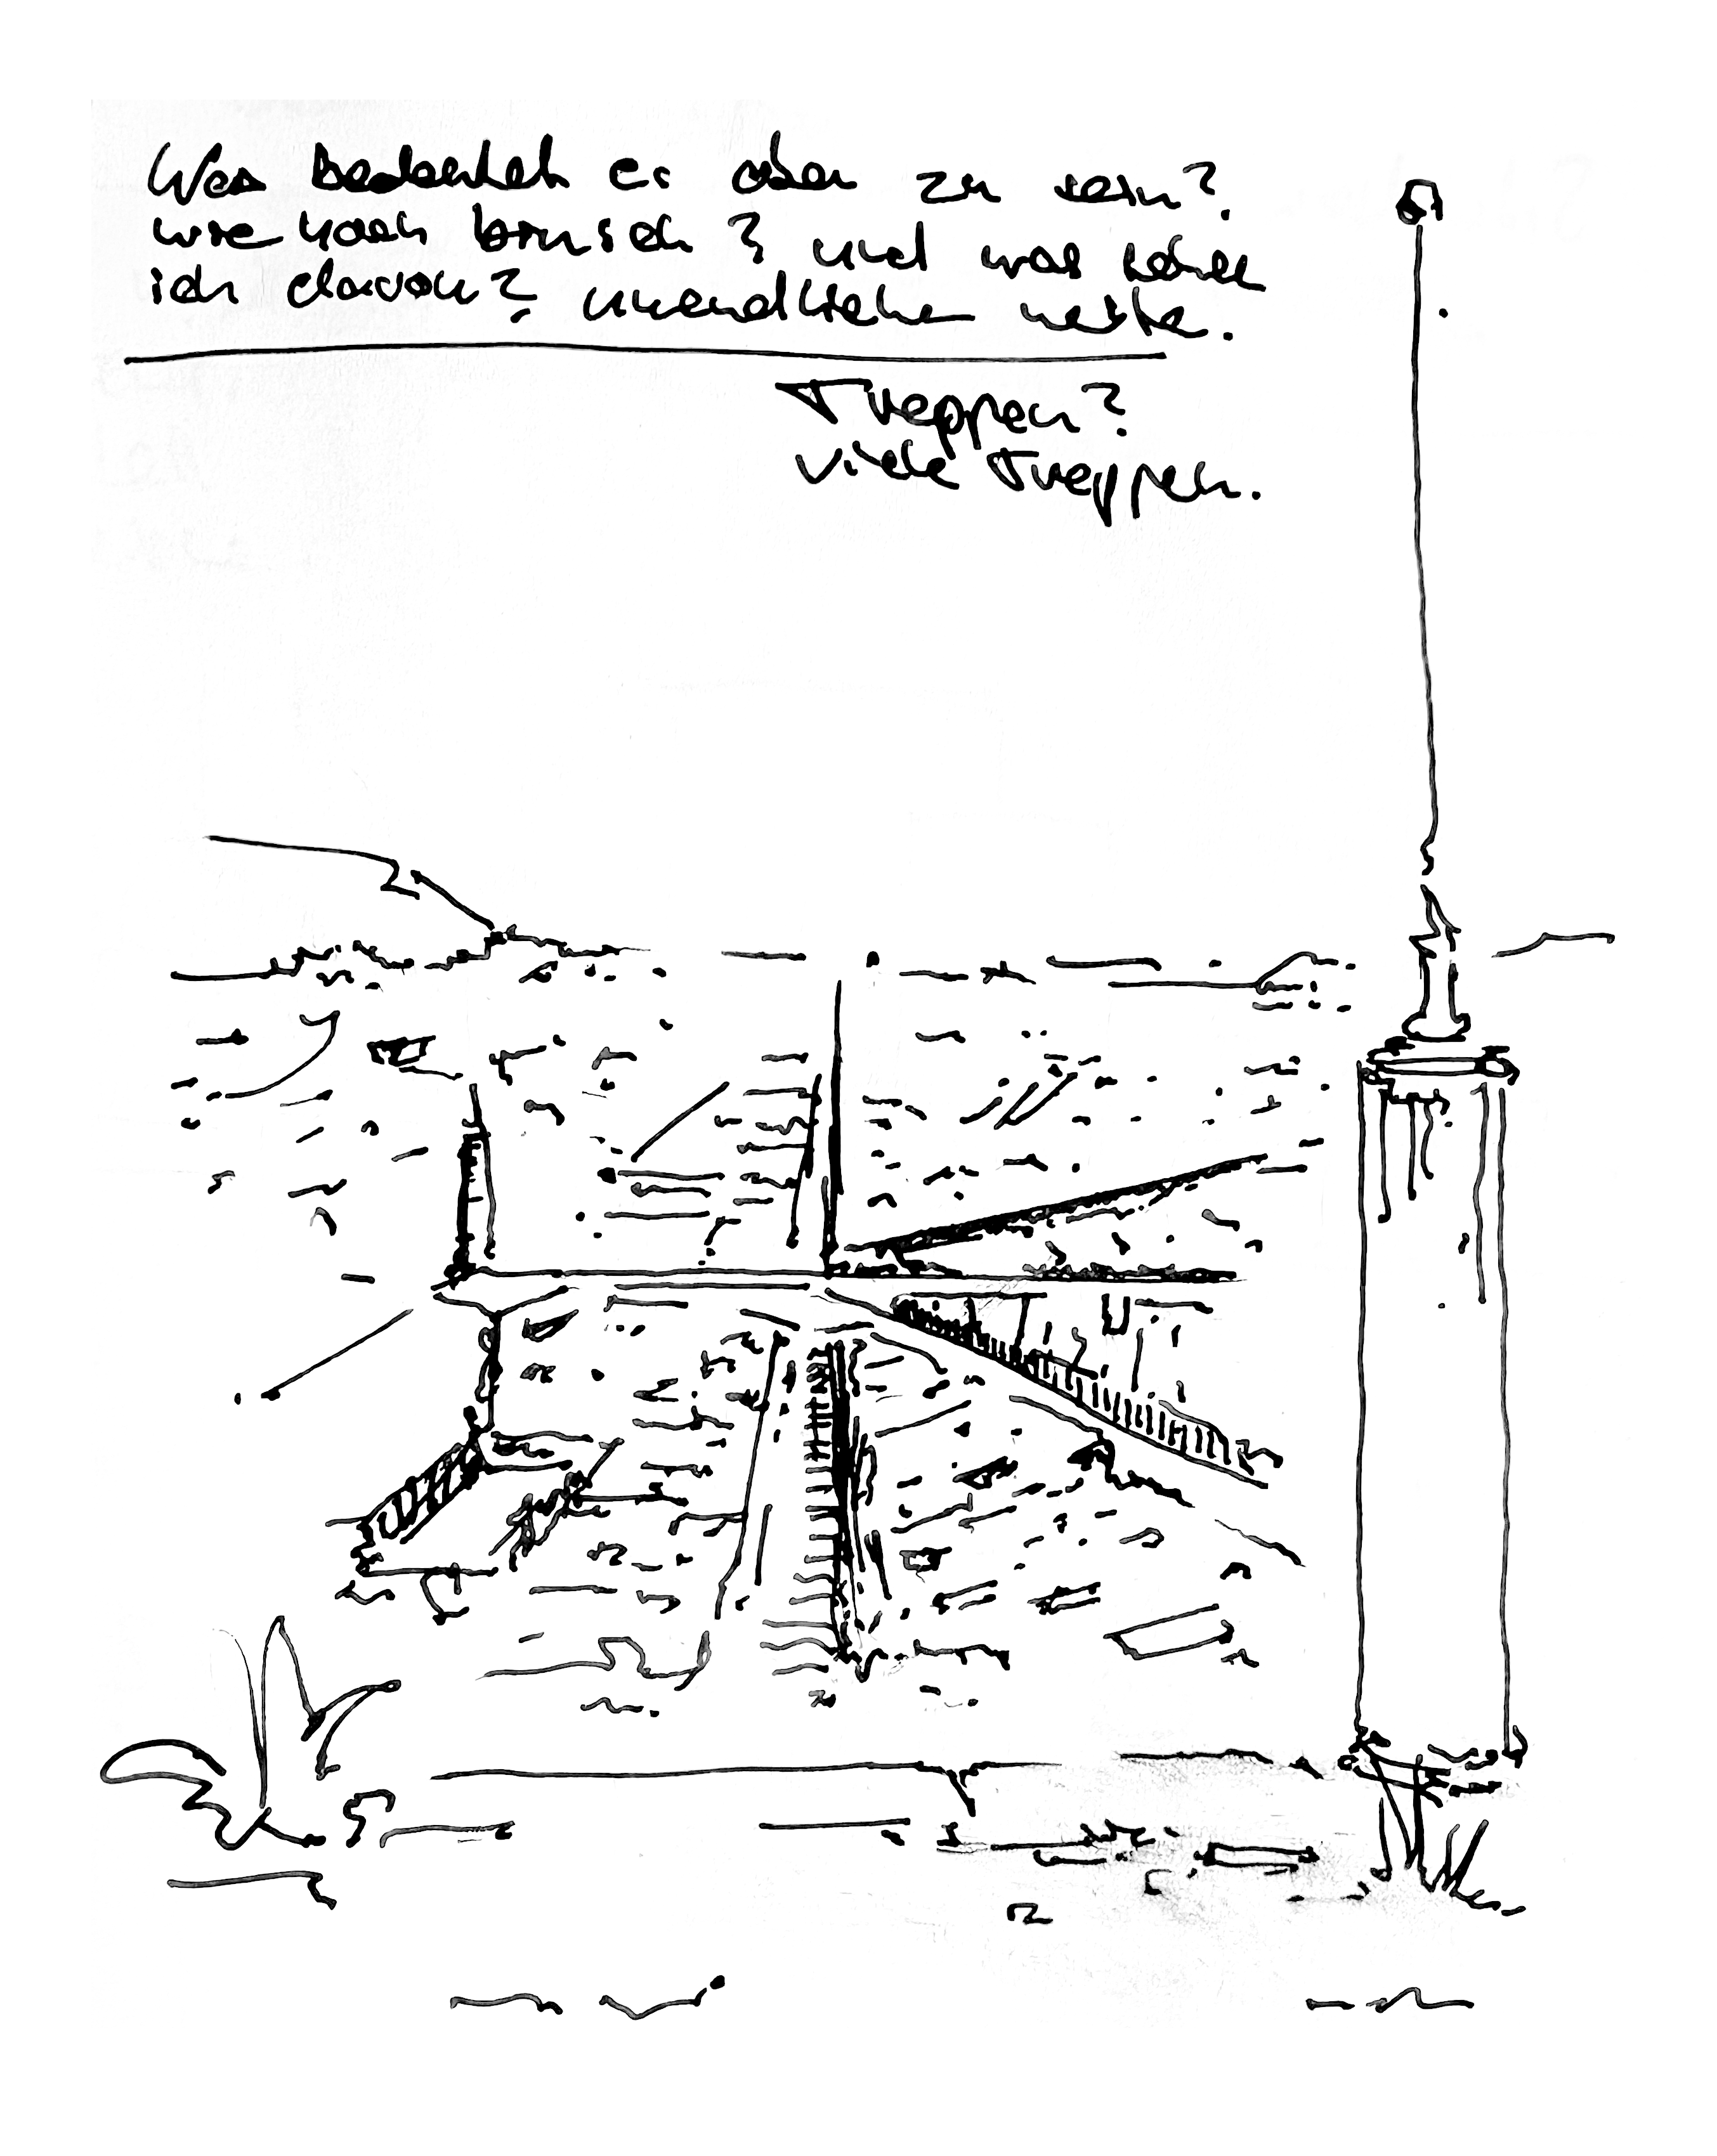 Was bedeutet es oben zu sein?
wie hoch bin ich? und was sehe
ich davon? unendliche weite.
Treppen?
viele Treppen.